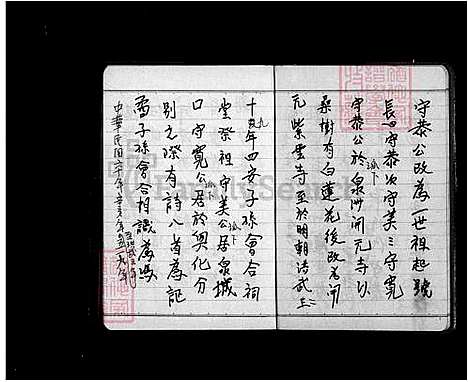 守恭公改為一世祖起號
長曰守恭次守美三守寬
守恭公派下於泉州開元寺以
桑樹有白蓮花後改為開
元紫雲寺至於明朝洪武二
十九年四安子孫會合祠
堂祭祖守美公派下居泉城
口守寬公派下居於興化分
別之際有詩八首為記
子孫會合相識為
中華民國六十年辛亥年